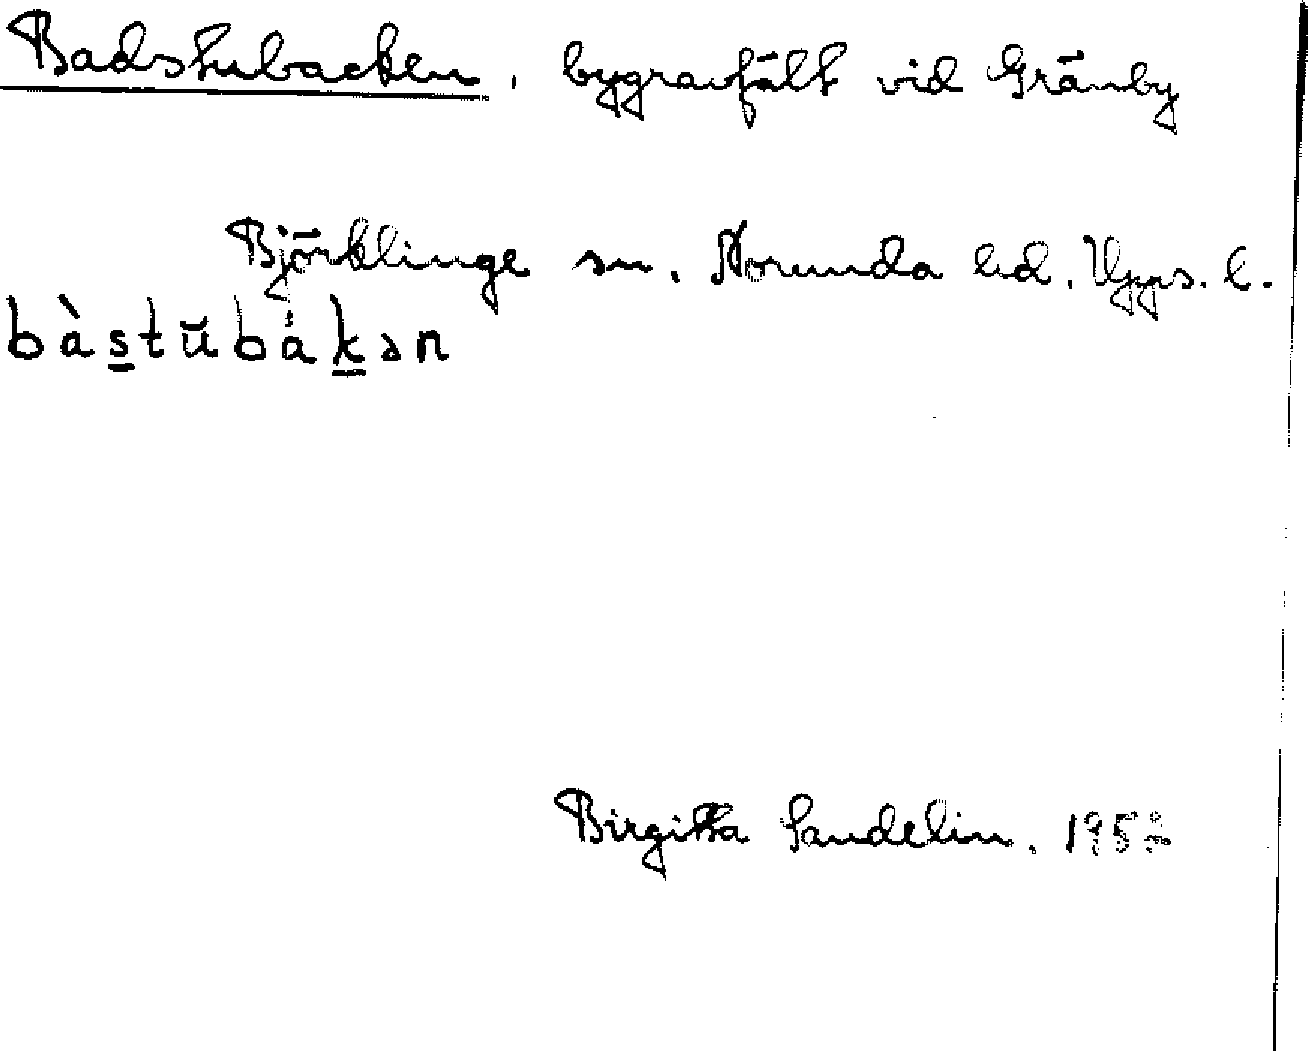 Badstubacken, bygravfält vid Gränby
Björklinge sn. Norunda hd. Upps. l.
bàs̲tŭbȧk̲ən
Birgitta Sandelin. 1952